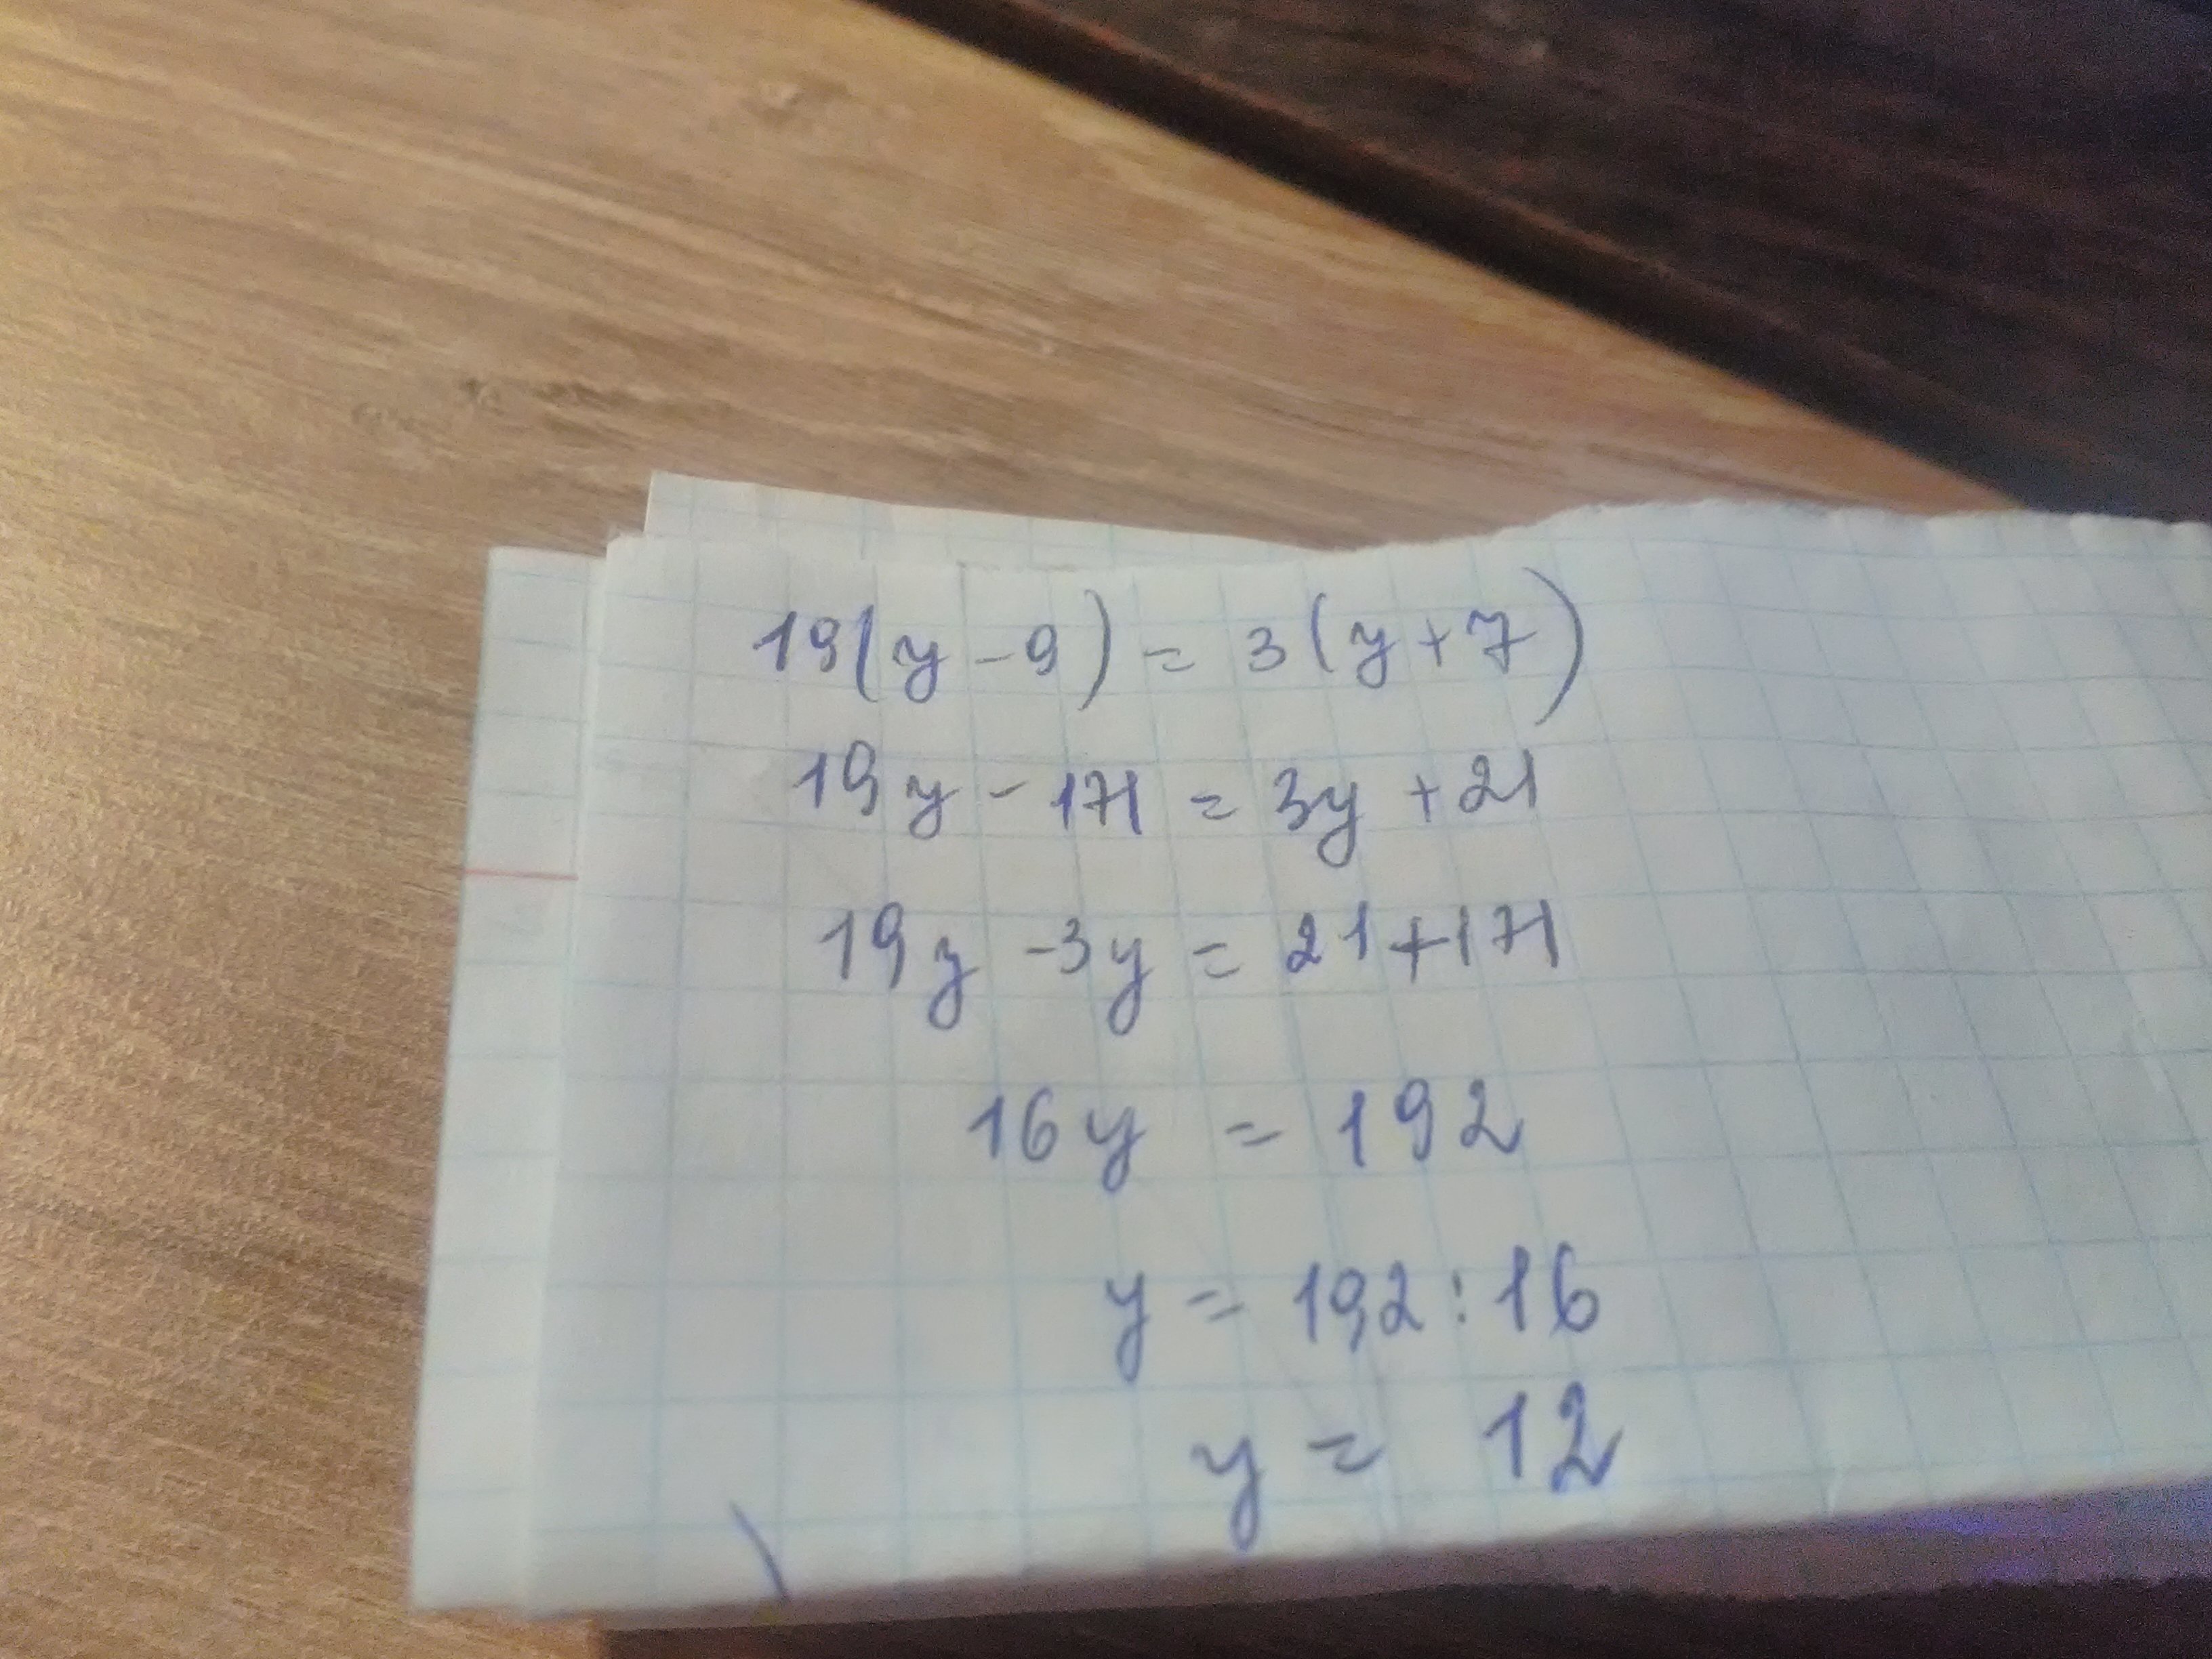 19(y-9) = 3(y+7)
19y - 171 = 3y + 21
19y - 3y = 21 + 171
16y = 192
y = 192 : 16
y = 12